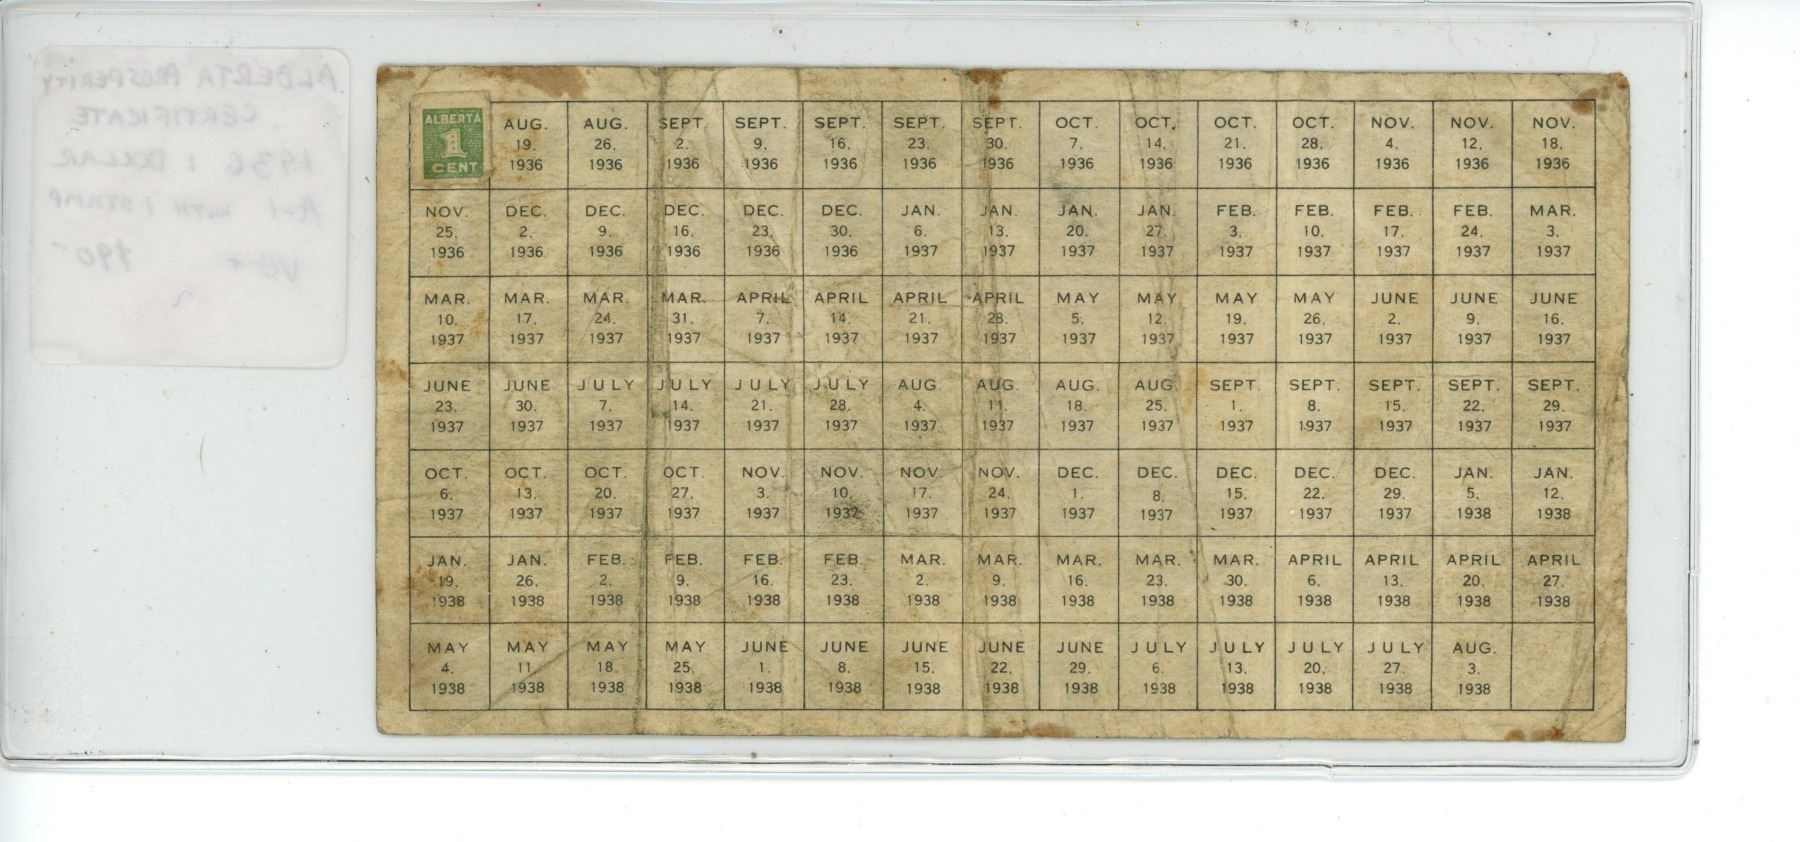 ALBERTA PROSPERITY
CERTIFICATE
1936 1 DOLLAR
A-1 WITH 1 STAMP
VG + $90-
ALBERTA 1 CENT
AUG. 19, 1936
AUG. 26, 1936
SEPT. 2, 1936
SEPT. 9, 1936
SEPT. 16, 1936
SEPT. 23, 1936
SEPT. 30, 1936
OCT. 7, 1936
OCT. 14, 1936
OCT. 21, 1936
OCT. 28, 1936
NOV. 4, 1936
NOV. 12, 1936
NOV. 18, 1936
NOV. 25, 1936
DEC. 2, 1936
DEC. 9, 1936
DEC. 16, 1936
DEC. 23, 1936
DEC. 30, 1936
JAN. 6, 1937
JAN. 13, 1937
JAN. 20, 1937
JAN. 27, 1937
FEB. 3, 1937
FEB. 10, 1937
FEB. 17, 1937
FEB. 24, 1937
MAR. 3, 1937
MAR. 10, 1937
MAR. 17, 1937
MAR. 24, 1937
MAR. 31, 1937
APRIL 7, 1937
APRIL 14, 1937
APRIL 21, 1937
APRIL 28, 1937
MAY 5, 1937
MAY 12, 1937
MAY 19, 1937
MAY 26, 1937
JUNE 2, 1937
JUNE 9, 1937
JUNE 16, 1937
JUNE 23, 1937
JUNE 30, 1937
JULY 7, 1937
JULY 14, 1937
JULY 21, 1937
JULY 28, 1937
AUG. 4, 1937
AUG. 11, 1937
AUG. 18, 1937
AUG. 25, 1937
SEPT. 1, 1937
SEPT. 8, 1937
SEPT. 15, 1937
SEPT. 22, 1937
SEPT. 29, 1937
OCT. 6, 1937
OCT. 13, 1937
OCT. 20, 1937
OCT. 27, 1937
NOV. 3, 1937
NOV. 10, 1937
NOV. 17, 1937
NOV. 24, 1937
DEC. 1, 1937
DEC. 8, 1937
DEC. 15, 1937
DEC. 22, 1937
DEC. 29, 1937
JAN. 5, 1938
JAN. 12, 1938
JAN. 19, 1938
JAN. 26, 1938
FEB. 2, 1938
FEB. 9, 1938
FEB. 16, 1938
FEB. 23, 1938
MAR. 2, 1938
MAR. 9, 1938
MAR. 16, 1938
MAR. 23, 1938
MAR. 30, 1938
APRIL 6, 1938
APRIL 13, 1938
APRIL 20, 1938
APRIL 27, 1938
MAY 4, 1938
MAY 11, 1938
MAY 18, 1938
MAY 25, 1938
JUNE 1, 1938
JUNE 8, 1938
JUNE 15, 1938
JUNE 22, 1938
JUNE 29, 1938
JULY 6, 1938
JULY 13, 1938
JULY 20, 1938
JULY 27, 1938
AUG. 3, 1938